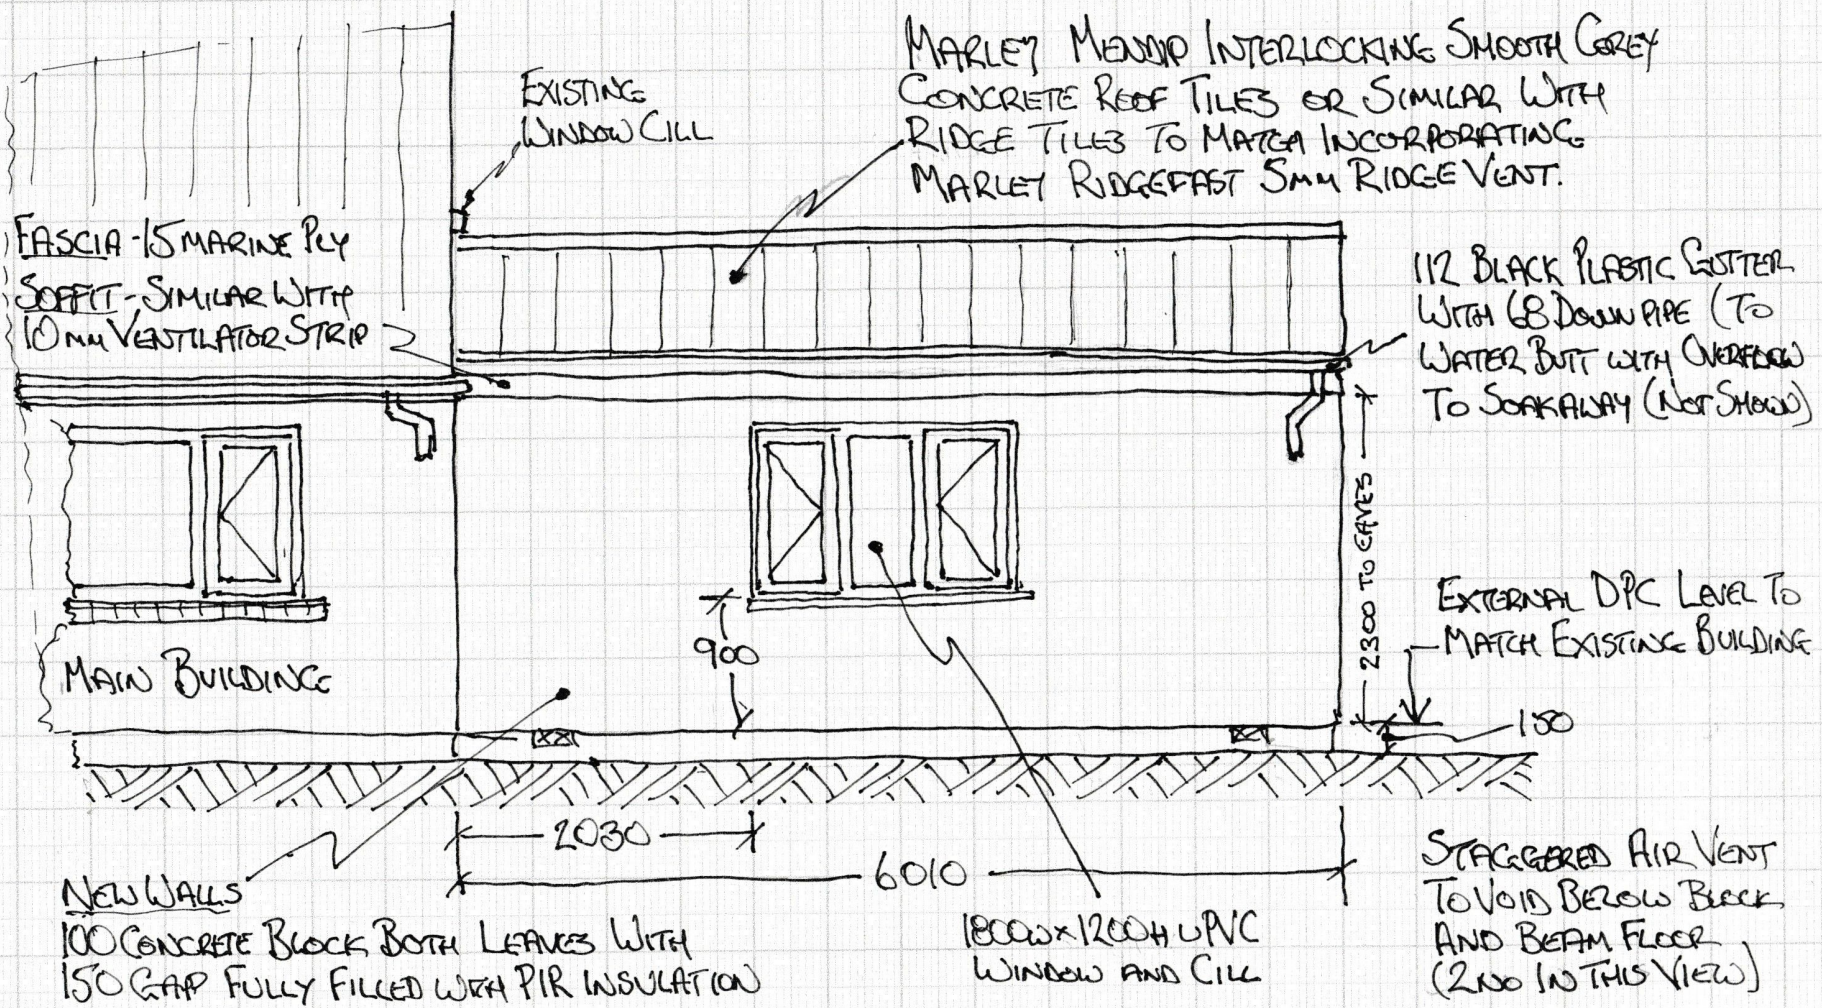 MARLEY MENDIP INTERLOCKING SMOOTH GREY
CONCRETE ROOF TILES OR SIMILAR WITH
RIDGE TILES TO MATCH INCORPORATING
MARLEY RIDGEFAST 5MM RIDGE VENT.
EXISTING
WINDOW CILL
FASCIA - 15 MARINE PLY
SOFFIT - SIMILAR WITH
10MM VENTILATOR STRIP
112 BLACK PLASTIC GUTTER
WITH 68 DOWNPIPE (TO
WATER BUTT WITH OVERFLOW
TO SOAKAWAY (NOT SHOWN)
2300 TO EAVES
EXTERNAL DPC LEVEL TO
MATCH EXISTING BUILDING
150
900
MAIN BUILDING
2030
6010
NEW WALLS
100 CONCRETE BLOCK BOTH LEAVES WITH
150 GAP FULLY FILLED WITH PIR INSULATION
1800W x 1200H UPVC
WINDOW AND CILL
STAGGERED AIR VENT
TO VOID BELOW BLOCK
AND BEAM FLOOR
(2NO IN THIS VIEW)